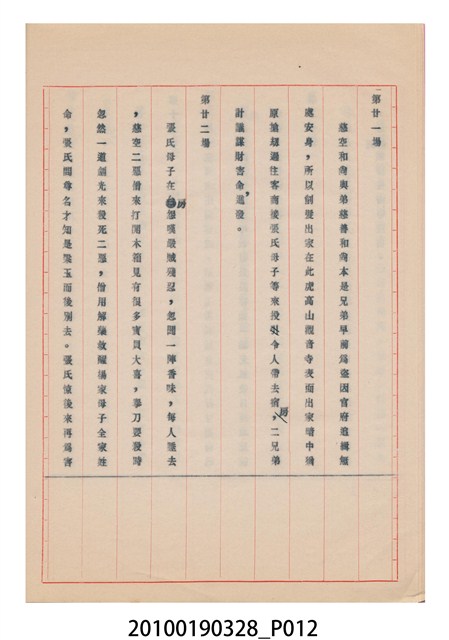 第廿一場
慈空和尚與弟慈善和尚本是兄弟早前為盜因官府追緝無
處安身，所以削髮出家在此虎高山觀音寺表面出家暗中稱
原搶刼過往客商接張氏母子等來投引令人帶去宿房，二兄弟
計議謀財害命，退發。
第廿二場
張氏母子在房怨嘆嚴賊殘忍，忽聞一陣香味，每人睡去
，慈空二惡僧來打開木箱見有很多寶貝大喜，拿刀要殺時
忽然一道劍光來殺死二惡，僧用解藥救醒楊家母子全家姓
命，張氏問尊名才知是飛玉而後別去。張氏憶後來再為害
20100190328_P012